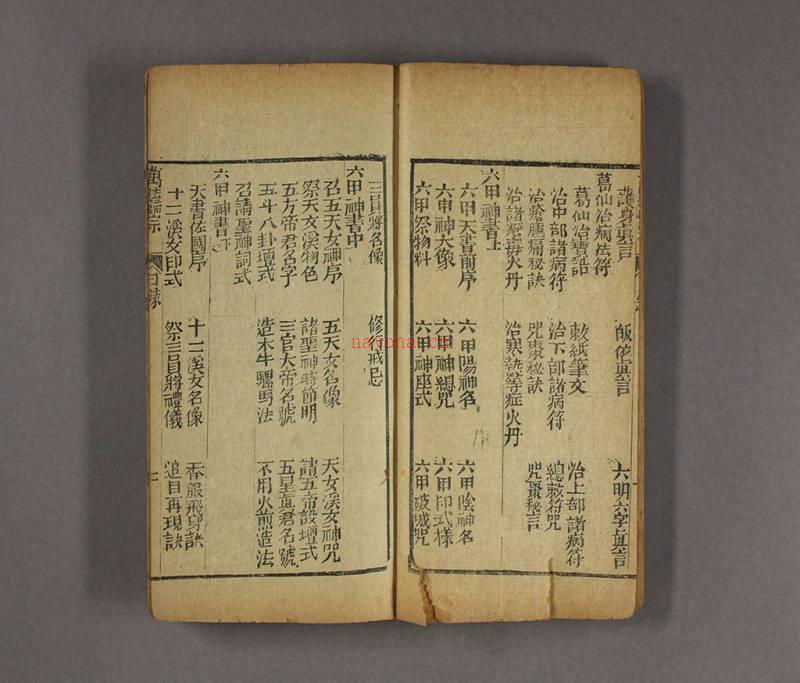 護身真言 皈依真言 六明六字真言
葛仙治病法符
葛仙治寶誥 敕紙筆文 治上部諸病符
治中部諸病符 治下部諸病符 總敕符咒
治瘡腫痛秘訣 咒棗秘訣 咒棗秘言
治諸瘡毒火丹 治寒熱等症火丹
六甲神書上
六甲天書前序 六甲陽神名 六甲陰神名
六甲神大像 六甲神總咒 六甲印式樣
六甲祭物料 六甲神座式 六甲破城咒
三員將名像 修行戒忌
六甲神書中
召五天女神序 五天女名像 天女溪女神咒
祭天女溪物色 諸聖神時節明 請五帝設壇式
五方帝君名字 三官大帝名號 五星真君名號
五斗八卦壇式 造木牛騾馬法 不用火煎造法
召請聖神詞式
六甲神書下
天書佐國序 十二溪女名像 香服飛身訣
十二溪女印式 祭三員將禮儀 追目再現訣
萬法歸宗 目錄
nayona.cn